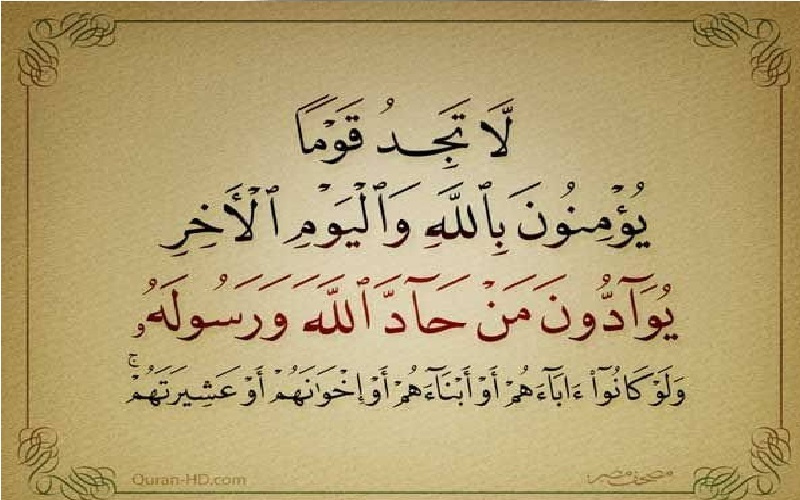 لَّا تَجِدُ قَوْمًا
يُؤْمِنُونَ بِٱللَّهِ وَٱلْيَوْمِ ٱلْأَخِرِ
يُوَآدُّونَ مَنْ حَآدَّ ٱللَّهَ وَرَسُولَهُۥ
وَلَوْ كَانُوٓا۟ ءَابَآءَهُمْ أَوْ أَبْنَآءَهُمْ أَوْ إِخْوَٰنَهُمْ أَوْ عَشِيرَتَهُمْ ۚ
Quran-HD.com مصحف مصر